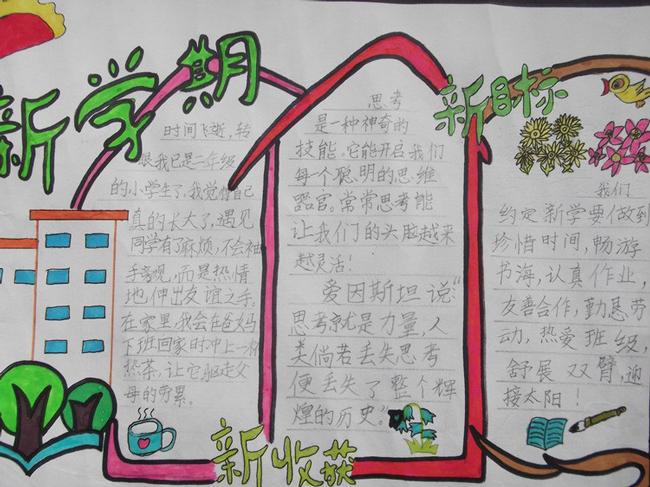 新学期
时间飞逝,转
眼我已是二年级
的小学生了,我觉得自己
真的长大了,遇见
同学有了麻烦,不会袖
手旁观,而是热情
地,伸出友谊之手。
在家里,我会在爸妈
下班回家时冲上一杯
热茶,让它驱走父
母的劳累。
思考
是一种神奇的
技能。它能开启我们
每个聪明的思维
器官。常常思考能
让我们的头脑越来
越灵活!
爱因斯坦说:“
思考就是力量,人
类倘若丢失思考
便丢失了整个辉
煌的历史。”
新收获
新目标
我们
约定新学要做到
珍惜时间,畅游
书海,认真作业,
友善合作,勤恳劳
动,热爱班级,
舒展双臂,迎
接太阳!